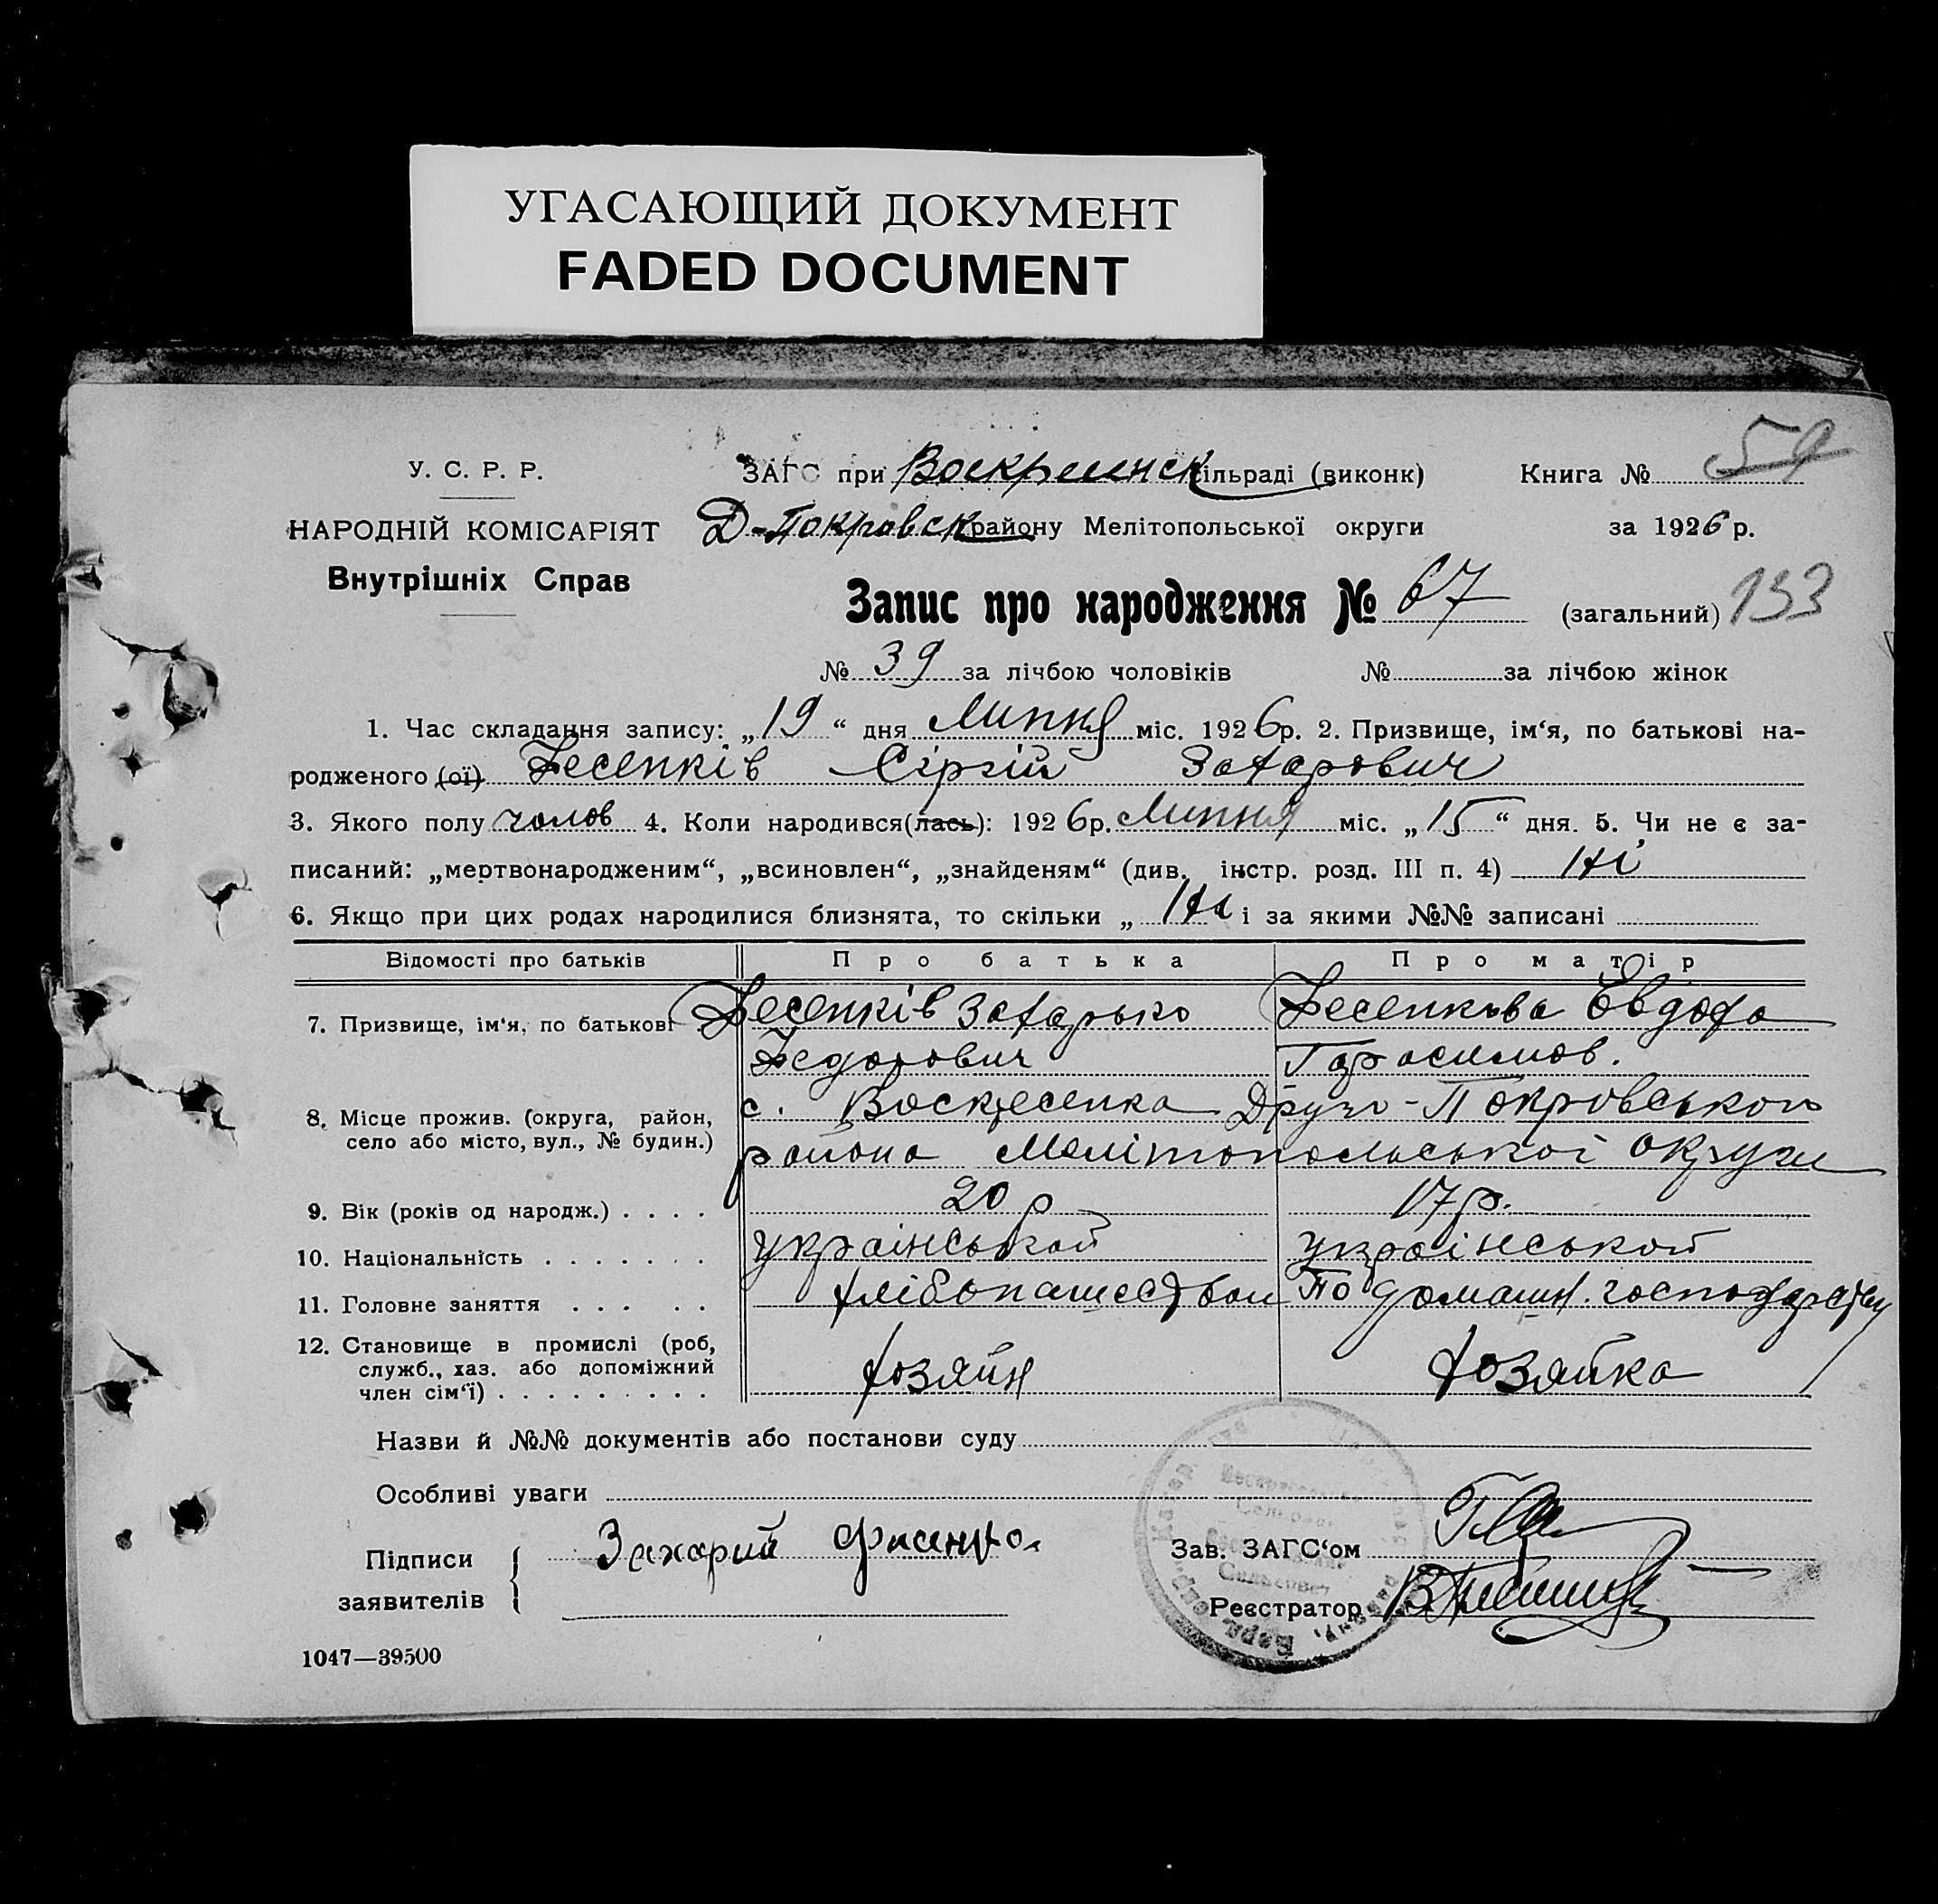 УГАСАЮЩИЙ ДОКУМЕНТ
FADED DOCUMENT
У. С. Р. Р.
НАРОДНІЙ КОМІСАРІЯТ
Внутрішніх Справ
ЗАГС при Воскресинск сільраді (виконк)
Д-Покровск району Мелітопольської округи
Книга №
за 1926 р.
Запис про народження № 67 (загальний) 133
№ 39 за лічбою чоловіків № за лічбою жінок
1. Час складання запису: „19“ дня Липня міс. 1926р. 2. Призвище, ім‘я, по батькові на-
родженого (ої) Фесенків Сергій Захарович
3. Якого полу чолов 4. Коли народився(лась): 1926р. Липня міс. „15“ дня. 5. Чи не є за-
писаний: „мертвонародженим“, „всиновлен“, „знайденям“ (див. інстр. розд. III п. 4) Ні
6. Якщо при цих родах народилися близнята, то скільки „ Ні і за якими №№ записані
Відомості про батьків Про батька Про матір
7. Призвище, ім‘я, по батькові Фесенків Захарько Фесенкова Євдоха
Федорович Гарасимов.
8. Місце прожив. (округа, район, село або місто, вул., № будин.)
с. Воскресенка Друго-Покровського
района Мелітопольської округи
9. Вік (років од народж.) . . . . 20 р 17 р.
10. Національність . . . . . . . української української
11. Головне заняття . . . . . хлібопашеством По домашн. господарству
12. Становище в промислі (роб, служб., хаз. або допоміжний член сім‘ї) . . . . . . . . . хозяйн хозяйка
Назви й №№ документів або постанови суду
Особливі уваги
Підписи заявителів { Захарий
Зав. ЗАГС‘ом
Реєстратор
1047—39500